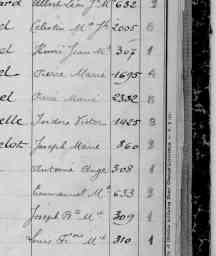 ard Albert Léon Jh Mie 632 2
el Célestin Mie Jh 2005 6
el Henri Jean Mie 307 1
el Pierre Marie 1695 4
el Pierre Marie 2382
elle Isidore Victor 1425 3
elot Joseph Marie 860 2
Antoine Ange 308 1
Emmanuel Mie 633 2
Joseph Fs Mie 309 1
Louis Frçois Mie 310 1